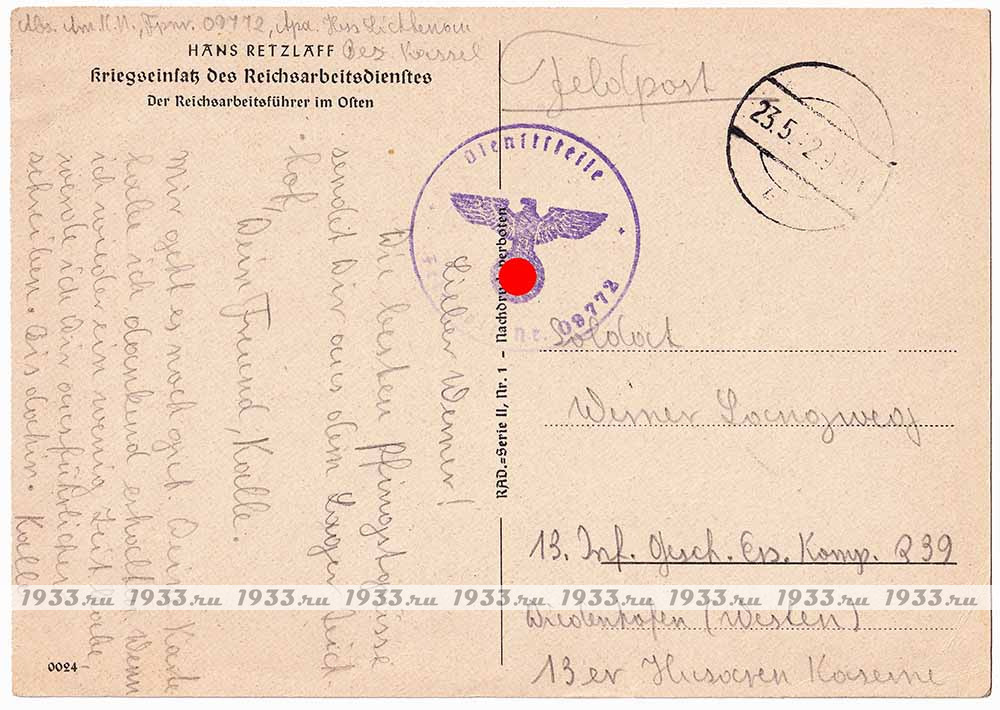 Abs. Am. K. N., Fpnr. 09772, Apa. Hess Lichtenau
Bez. Kassel
HANS RETZLAFF
Kriegseinsatz des Reichsarbeitsdienstes
Der Reichsarbeitsführer im Osten
Feldpost
23.5.42.
Dienststelle
Nr. 09772
RAD.=Serie II, Nr. 1 - Nachdruck verboten
Lieber Werner!
Die besten Pfingstgrüsse
sendet Dir aus dem Lager
hof,
Dein Freund, Kalle.
Mir geht es noch gut. Deine Karte
habe ich dankend erhalten. Wenn
ich wieder ein wenig Zeit habe,
werde ich Dir ausführlicher
schreiben. Bis dahin. Kalle
Soldat
Werner Langweg
13. Inf. Gesch. Ers. Komp. R 39
Diedenhofen (Westen)
13er Husaren Kaserne
0024
1933.ru 1933.ru 1933.ru 1933.ru 1933.ru 1933.ru 1933.ru 1933.ru 1933.ru